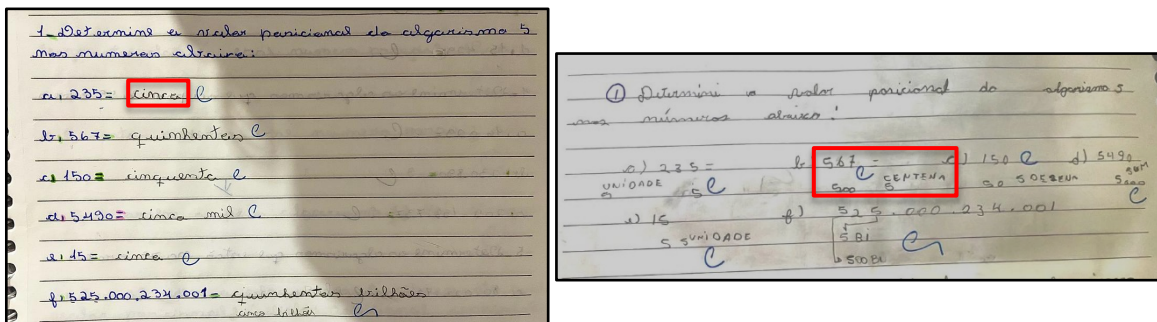 1- Determine o valor posicional do algarismo 5
nos números abaixo:
a) 235 = cinco C
b) 567 = quinhentos C
c) 150 = cinquenta C
d) 5490 = cinco mil C
e) 15 = cinco C
f) 525.000.234.001 = quinhentos bilhões
cinco bilhões C
① Determini o valor posicional do algorismo 5
nos números abaixo:
a) 235 = b) 567 = c) 150 C d) 5490
UNIDADE 5 C C 500 5 CENTENA 50 5 DEZENA 5000 5UM C
e) 15 f) 525.000.234.001
5 5 UNIDADE 5 BI
C 500 BI C